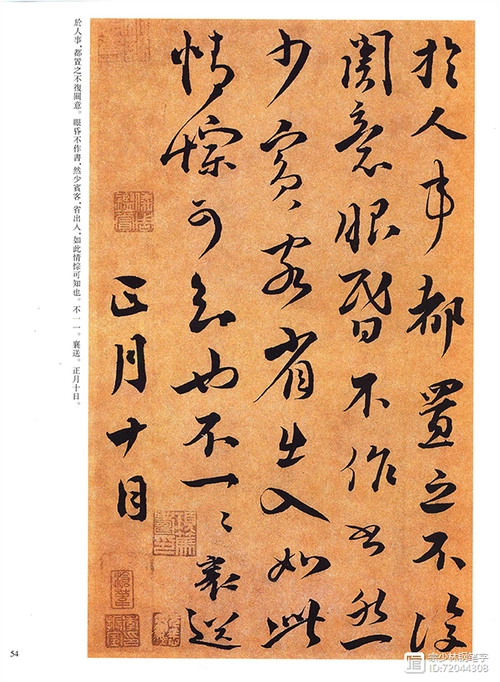 於人事都置之不復
關意眼昏不作書然
少賓客省出入如此
情悰可知也不一一襄送
正月十日
於人事，都置之不復關意。眼昏不作書，然少賓客，省出入，如此情悰可知也。不一一。襄送。正月十日。
54
宗少林钢笔字
ID:72044308